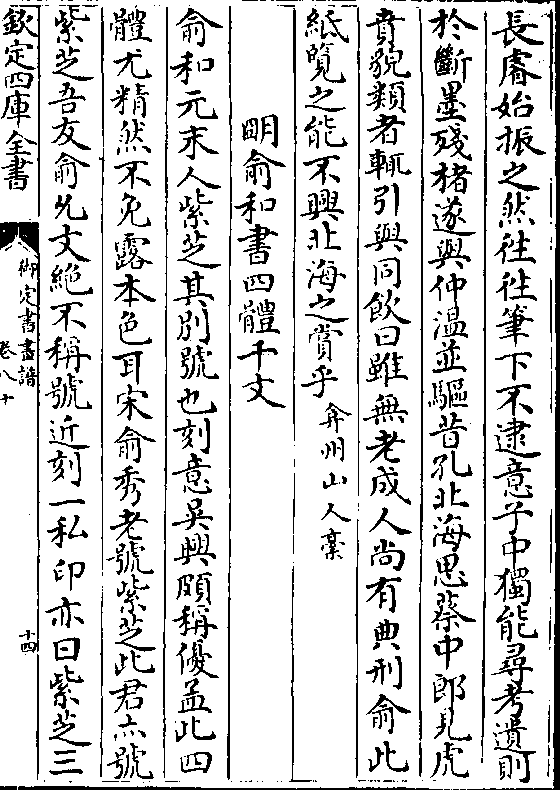 長睿始振之然往往筆下不逮意子中獨能尋考遺則
於斷墨殘楮遂與仲溫並驅昔孔北海思蔡中郎見虎
賁貌類者輒引與同飲曰雖無老成人尚有典刑俞此
紙覽之能不興北海之賞乎 弇州山人稾
明俞和書四體千文
俞和元末人紫芝其別號也刻意吳興頗稱優孟此四
體尤精然不免露本色耳宋俞秀老號紫芝此君亦號
紫芝吾友俞允文絶不稱號近刻一私印亦曰紫芝三
欽定四庫全書
御定書畫譜
卷八十
十四